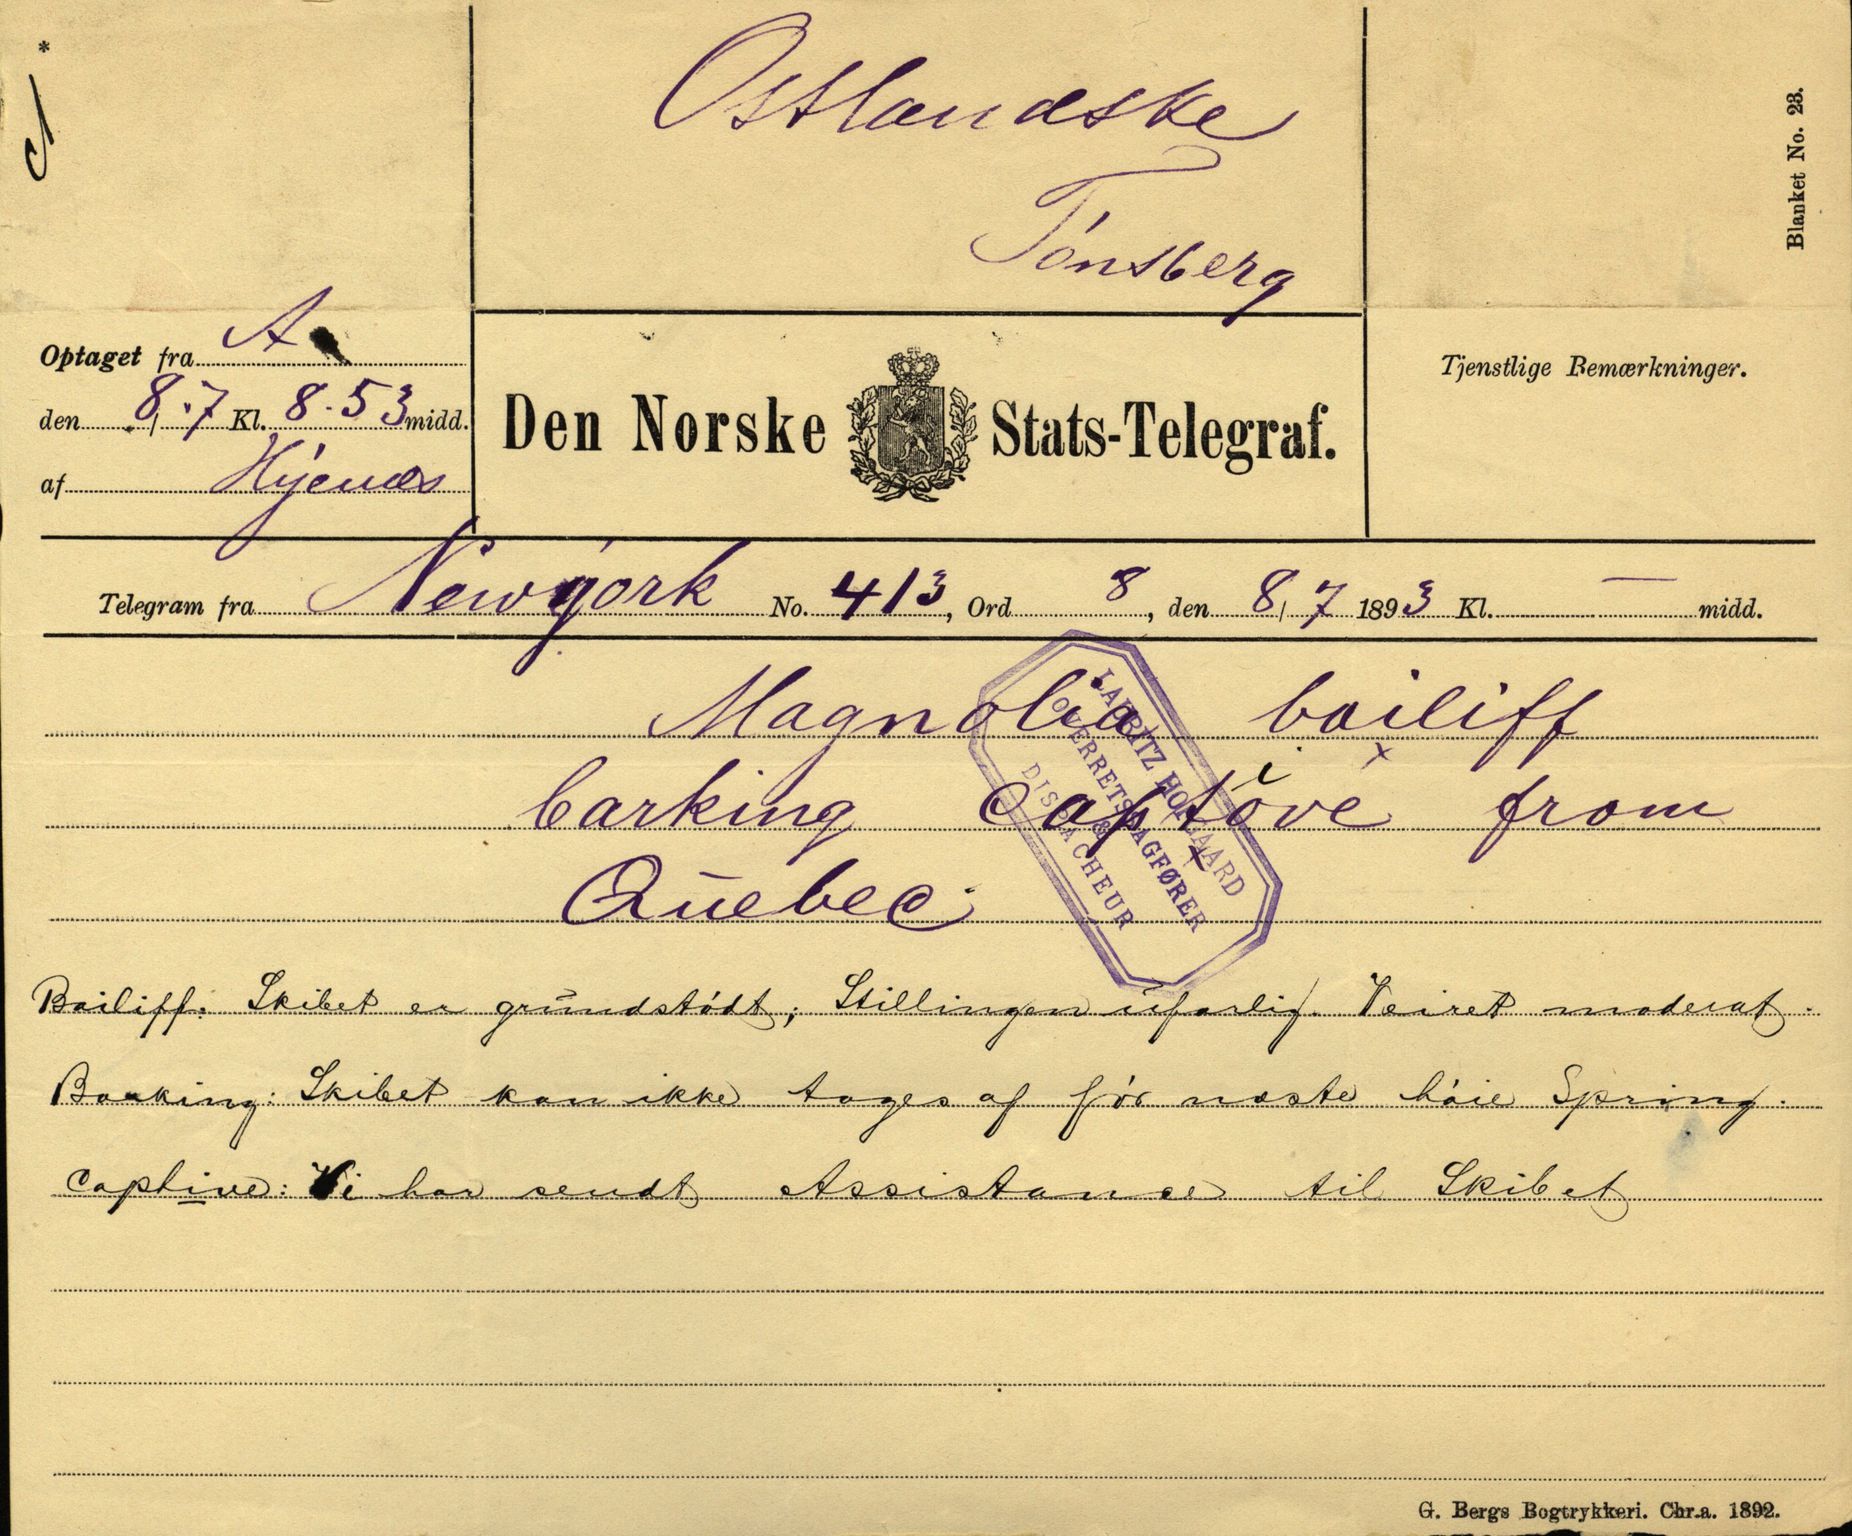 Ostlandske
Tønsberg
Blanket No. 23.
Optaget fra A
den 8/7 Kl. 8.53 midd.
af
Den Norske Stats-Telegraf.
Tjenstlige Bemærkninger.
Telegram fra Newyork No. 413, Ord 8, den 8/7 1893 Kl. — midd.
Magnolia bailiff
barking captove from
i
Quebec.
LAURITZ HOLGAARD
OVERRETSSAGFØRER
&
DISPACHEUR
Bailiff: Skibet er grundstødt; Stillingen ufarlig. Veiret moderat.
Barking: Skibet kan ikke tages af før næste høie Spring.
captive: Vi har sendt Assistance til Skibet
G. Bergs Bogtrykkeri. Chr.a. 1892.